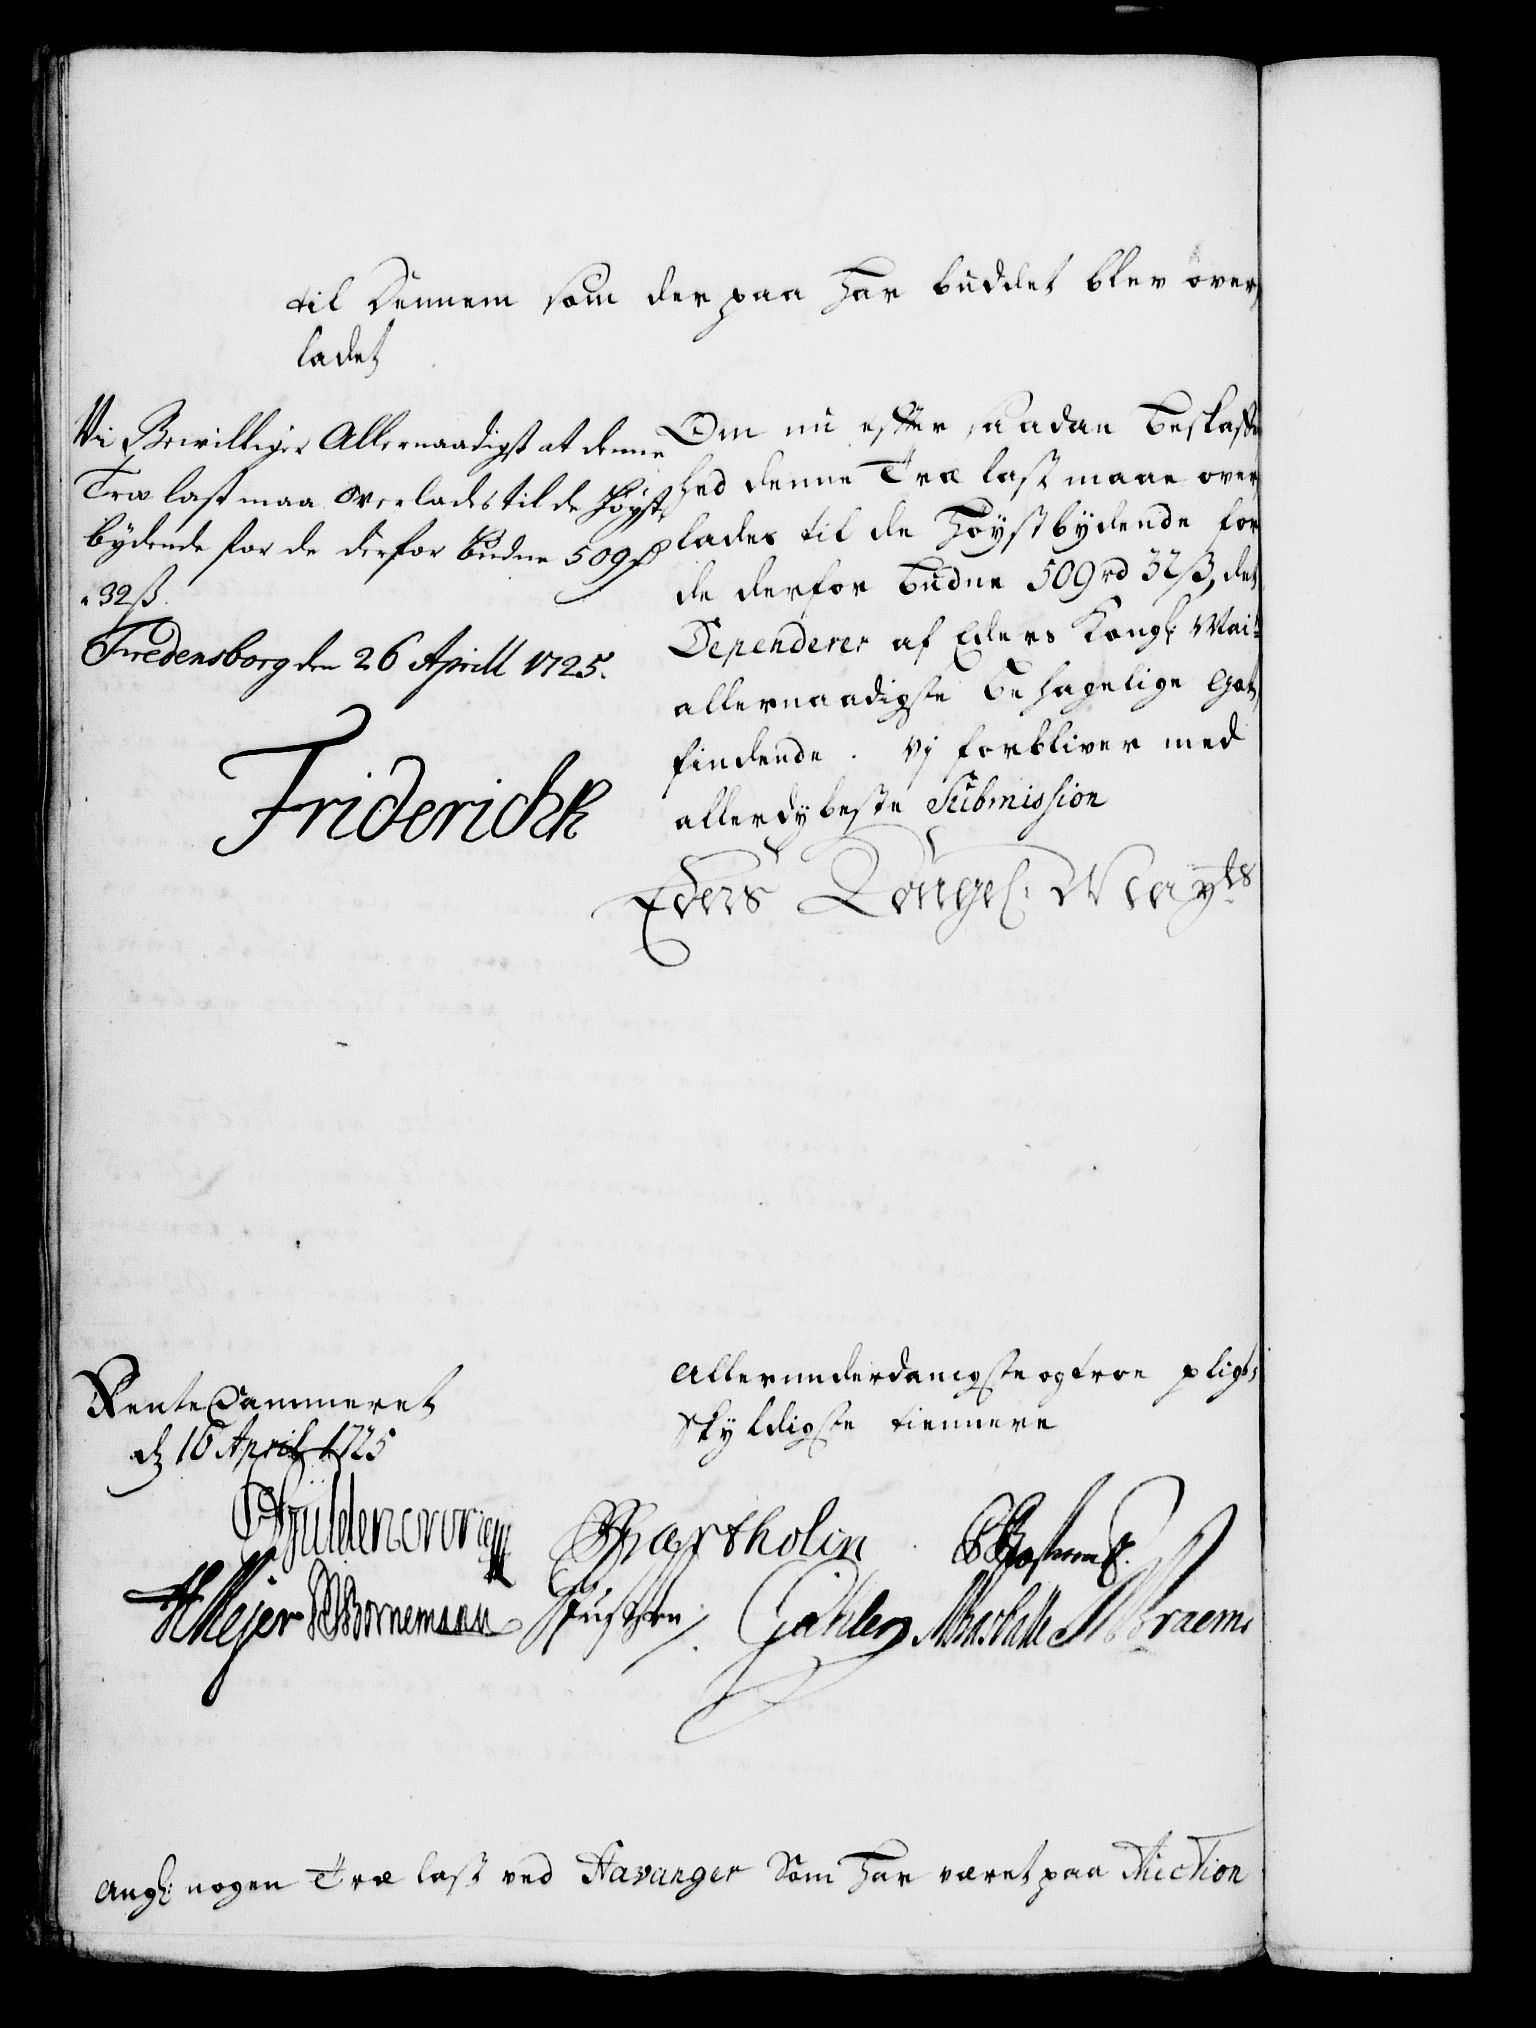 til Dennem som der paa har buddet blev over,
ladet
Vi Bevilliger Allernaadigst at denne
Træ last maa Overlades til de Høyst,
bydende for de derfor budne 509 rd
32 ß.
Fredensborg den 26 Aprill 1725.
Friderich R
Om nu efter saadan beskaffen
hed denne Træ last maae over
lades til de høystbydende for
de derfor budne 509 rd 32 ß, det
Dependerer af Eders Kongl: Mai:ts
allernaadigste behagelige Got,
findende. Vj forbliver med
allerdybeste Submission
Eders Kongel: Mayts
Rente Cammeret
d 16 April 1725
Allerunderdanigste og troe pligt,
skyldigste tiennere
Gÿldencrone
Bartholin
H Mejer Bornemann
Gahlen
Braem
Angl: nogen Træ last ved Stavanger Som har været paa Auction